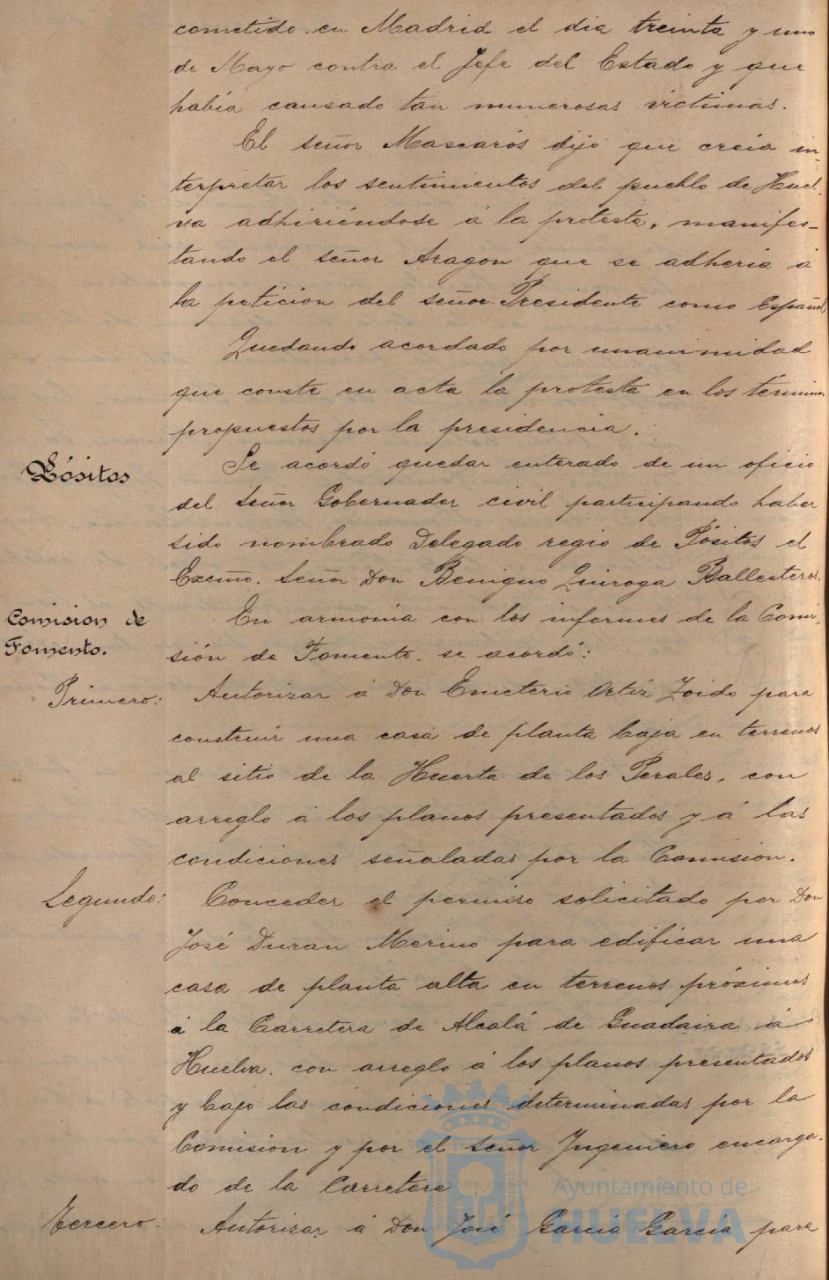 cometido en Madrid el día treinta y uno
de Mayo contra el Jefe del Estado y que
había causado tan numerosas víctimas.
El señor Mascarós dijo que creía in-
terpretar los sentimientos del pueblo de Huel-
va adhiriéndose á la protesta, manifes-
tando el señor Aragon que se adhería á
la petición del señor Presidente como Español
Quedando acordado por unanimidad
que conste en acta la protesta en los términos
propuestos por la presidencia.
Pósitos
Se acordó quedar enterado de un oficio
del Señor Gobernador civil participando haber
sido nombrado Delegado regio de Pósitos el
Excmo. Señor Don Benigno Quiroga Ballesteros.
Comision de
Fomento.
En armonía con los informes de la Comi-
sión de Fomento. se acordó:
Primero:
Autorizar á Don Emeterio Ortiz Zoido para
construir una casa de planta baja en terrenos
al sitio de la Huerta de los Perales, con
arreglo á los planos presentados y á las
condiciones señaladas por la Comision.
Segundo:
Conceder el permiso solicitado por Don
José Duran Merino para edificar una
casa de planta alta en terrenos próximos
á la Carretera de Alcalá de Guadaira á
Huelva. con arreglo á los planos presentados
y bajo las condiciones determinadas por la
Comision y por el señor Ingeniero encarga-
do de la Carretera
Tercero:
Autorizar á Don José García García para
Ayuntamiento de
HUELVA